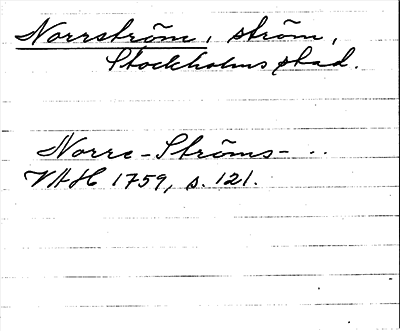 Norrström, ström,
Stockholms stad.
Norre-Ströms- ..
VAH 1759, s. 121.